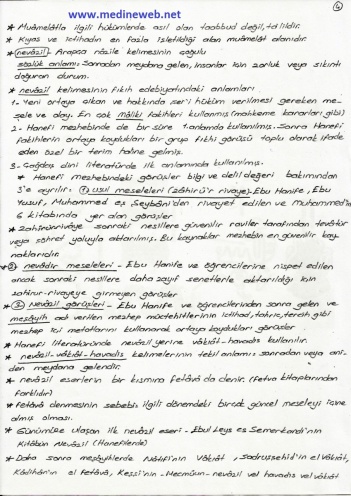 6
www.medineweb.net
* Muâmelâtla ilgili hükümlerde asıl olan taabbud değil, ta'lildir.
* Kıyas ve ictihadın en fazla işletildiği alan muâmelât alanıdır.
* nevâzil Arapça nâzile kelimesinin çoğulu
sözlük anlamı: Sonradan meydana gelen, insanlar için zorluk veya sıkıntı
doğuran durum.
* nevâzil kelimesinin fıkıh edebiyatındaki anlamları
1- Yeni ortaya çıkan ve hakkında şer'i hüküm verilmesi gereken me-
sele ve olay. En çok mâliki fakihleri kullanmış (mahkeme kararları gibi)
2- Hanefi mezhebinde de bir süre 1. anlamda kullanılmış. Sonra Hanefi
fakihlerin ortaya koydukları bir grup fıkhi görüşü toplu olarak ifade
eden özel bir terim haline gelmiş.
3- Çağdaş dini literatürde ilk anlamında kullanılmış.
* Hanefi mezhebindeki görüşler bilgi ve delil değeri bakımından
3'e ayrılır: 1 usul meseleleri (zâhirü'r rivaye): Ebu Hanife, Ebu
Yusuf, Muhammed eş Şeybâni'den rivayet edilen ve muhammed'in
6 kitabında yer alan görüşler
* Zahirürrivâye sonraki nesillere güvenilir raviler tarafından tevâtür
veya şöhret yoluyla aktarılmış. Bu kaynaklar mezhebin en güvenilir kay-
naklarıdır.
* 2 nevâdir meseleleri - Ebu Hanife ve öğrencilerine nispet edilen
ancak sonraki nesillere daha zayıf senetlerle aktarıldığı için
zahirur-rivayeye girmeyen görüşler
* 3 Nevâzil görüşleri - Ebu Hanife ve öğrencilerinden sonra gelen ve
meşâyih adı verilen mezhep müctehitlerinin ictihad, tahric, tercih gibi
mezhep içi metotlarını kullanarak ortaya koydukları görüşler
* Hanefi literatüründe nevâzil yerine vâkıât-havadis kullanılır.
* nevâzil-vâkıât-havadis kelimelerinin tekil anlamı sonradan veya ani-
den meydana gelendir.
* nevâzil eserlerin bir kısmına fetâvâ da denir. (Fetva kitaplarından
farklıdır)
* Fetâvâ denmesinin sebebi: ilgili dönemdeki birçok güncel meseleyi içine
almış olması.
* Günümüze ulaşan ilk nevâzil eseri - Ebul Leys es Semerkandi'nin
Kitâbün Nevâzil (Hanefilerde)
* Daha sonra meşâyıhlerde Nâtıfi'nin Vâkıât, Sadruşşehid'in el vâkıât,
Kâdîhân'ın el fetâvâ, Keşşi'nin - Mecmûun - nevâzil vel havadis vel vâkıât